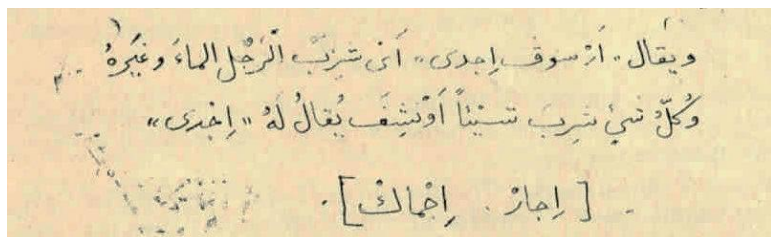 ويقال „ اَزْ سوف اِجدى „ اَىْ شرِبَ الْرَجُل الماءَ وغَيَرهُ
وُكلّ شيْ شرِبَ شيْئاً اَوْنشِفَ يُقالُ لَهُ „ اِجْدى „
[ اِجازْ . اِجْماكْ ] .